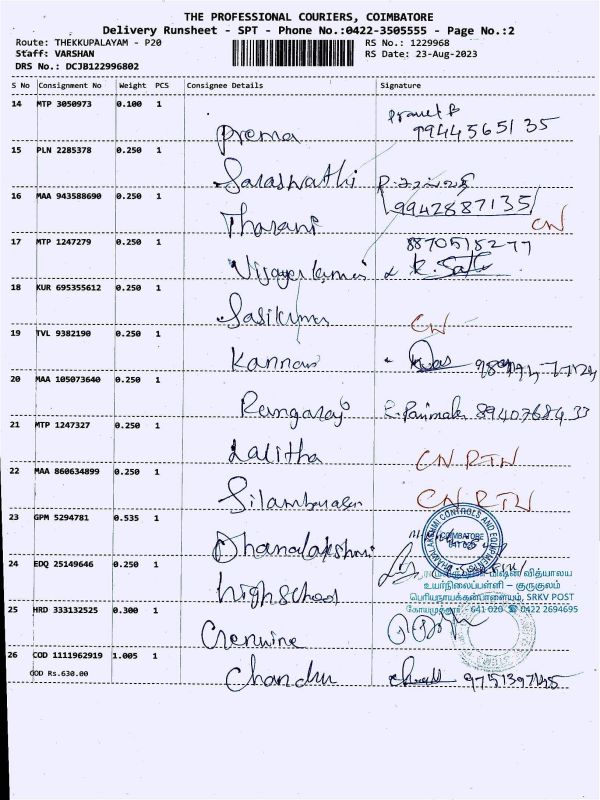 THE PROFESSIONAL COURIERS, COIMBATORE
Delivery Runsheet - SPT - Phone No.:0422-3505555 - Page No.:2
Route: THEKKUPALAYAM - P20 RS No.: 1229968
Staff: VARSHAN RS Date: 23-Aug-2023
DRS No.: DCJB122996802
S No Consignment No Weight PCS Consignee Details Signature
14 MTP 3050973 0.100 1
Prema 9944565135
15 PLN 2285378 0.250 1
Saraswathi
16 MAA 943588690 0.250 1 9942887135
Tharani CN
17 MTP 1247279 0.250 1 8870518277
Vijayakumar
18 KUR 695355612 0.250 1
Sasikumar CN
19 TVL 9382190 0.250 1
Kannan
20 MAA 105073640 0.250 1
Rangaraj 8940768433
21 MTP 1247327 0.250 1
Lalitha CN RTN
22 MAA 860634899 0.250 1
Silambarasan CN RTN
23 GPM 5294781 0.535 1
Dhanalakshmi
DHANALAKSHMI CONTROLS AND EQUIPMENTS
COIMBATORE
641 020
24 EDQ 25149646 0.250 1
வித்யாலயா
high school உயர்நிலைப்பள்ளி – குருகுலம்
பெரியநாயக்கன்பாளையம், SRKV POST
25 HRD 333132525 0.300 1 கோயமுத்தூர் - 641 020 ☎ 0422 2694695
Crenwine
26 COD 1111962919 1.005 1
COD Rs.630.00 Chandru